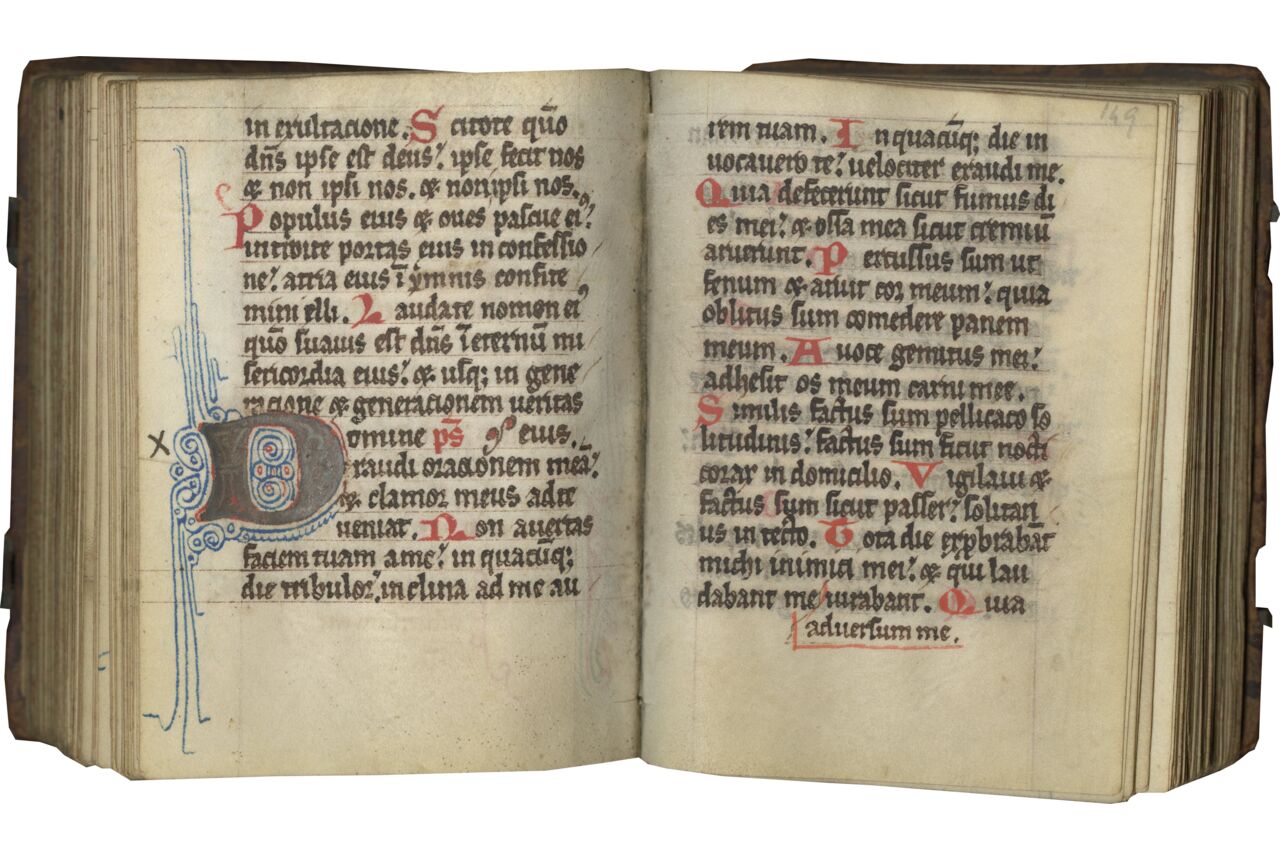 in exultacione. Scitote quō
dn̄s ipse est deus: ipse fecit nos
& non ipsi nos. & non ipsi nos.
Populus eius & oues pascue ei⁹:
introite portas eius in confessio
ne: atria eius ī ymnis confite
mini illi. Laudate nomen ei⁹
quō suauis est dn̄s ī eternū mi
sericordia eius: & usq; in gene
racione & generacionem ueritas
Domine ps̄ eius.
exaudi oracionem meā:
& clamor meus ad te
ueniat. Non auertas
faciem tuam a me: in quacūq;
die tribulor, inclina ad me au
149
rem tuam. In quacūq; die in
uocauero te: uelociter exaudi me.
Quia defecerunt sicut fumus di
es mei: & ossa mea sicut cremiū
aruerunt. Percussus sum ut
fenum & aruit cor meum: quia
oblitus sum comedere panem
meum. A uoce gemitus mei:
adhesit os meum carni mee.
Similis factus sum pellicano so
litudinis: factus sum sicut nocti
corax in domicilio. Vigilaui &
factus sum sicut passer: solitari
us in tecto. Tota die exp̄brabāt
michi inimici mei: & qui lau
dabant me iurabant. Quia
aduersum me.